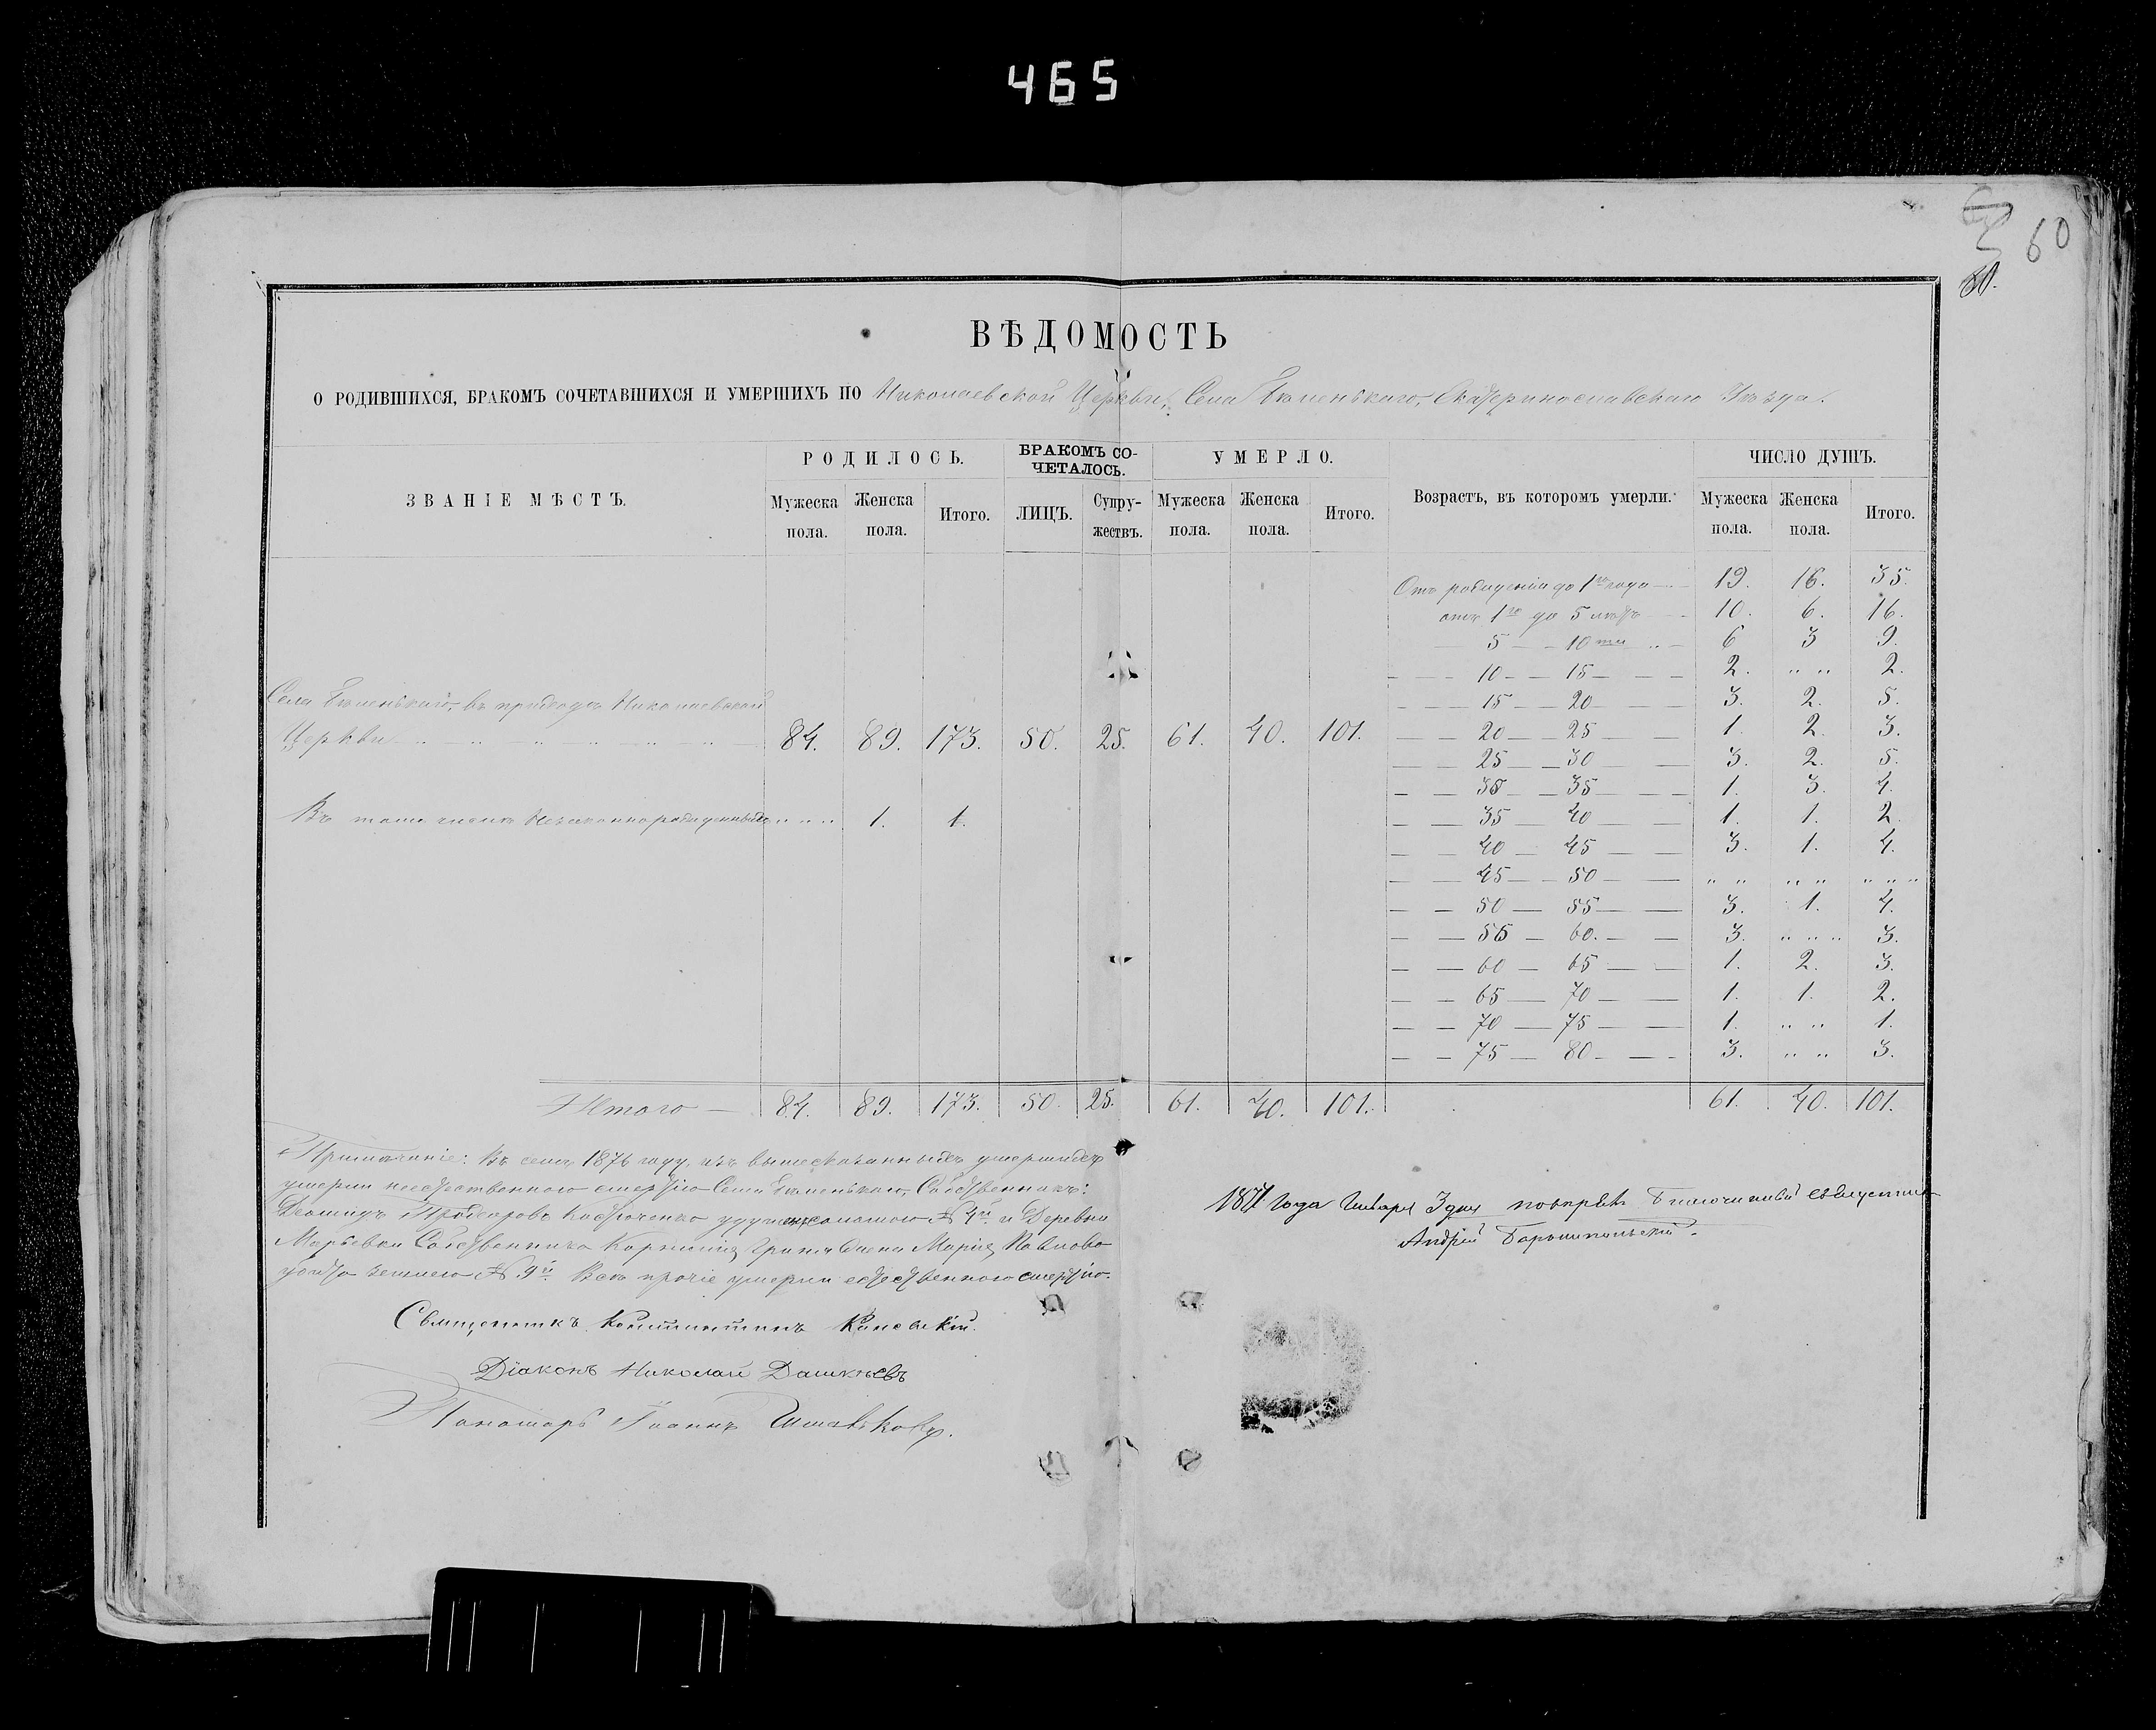 465
60
ВѢДОМОСТЬ
О РОДИВШИХСЯ, БРАКОМЪ СОЧЕТАВШИХСЯ И УМЕРШИХЪ ПО Николаевской Церкви, Села Екатеринославскаго Уѣзда.
ЗВАНІЕ МѢСТЪ. РОДИЛОСЬ. БРАКОМЪ СОЧЕТАЛОСЬ. УМЕРЛО. Возрастъ, въ которомъ умерли. ЧИСЛО ДУШЪ.
Мужеска пола. Женска пола. Итого. ЛИЦЪ. Супружествъ. Мужеска пола. Женска пола. Итого. Мужеска пола. Женска пола. Итого.
Отъ рожденія до 1го года 19. 16. 35.
отъ 1го до 5 лѣтъ 10. 6. 16.
5 — 10ти 6 3 9.
10 — 15 — 2. „ „ 2.
15 — 20 3. 2. 5.
20 — 25 1. 2. 3.
25 — 30 3. 2. 5.
30 — 35 1. 3. 4.
35 — 40 1. 1. 2.
40 — 45 3. 1. 4.
45 — 50 „ „ „ „ „ „ „
50 — 55 3. 1. 4.
55 — 60. 3. „ „ „ 3.
60 — 65 1. 2. 3.
65 — 70 1. 1. 2.
70 — 75 1. „ „ 1.
75 — 80 3. „ „ 3.
Села въ приходѣ Николаевской
Церкви 84. 89. 173. 50. 25. 61. 40. 101.
Въ томъ числѣ незаконнорожденныхъ „ „ „ 1. 1.
Итого — 84. 89. 173. 50. 25. 61. 40. 101. 61. 40. 101.
Примѣчаніе: Въ семъ 1876 году, изъ вышесказанныхъ умершихъ
умерли неестественною смертію Села Собственникъ:
№ 4й и Деревни
Марьевки Собственника Марія Павлова
землею № 9й. Всѣ прочіе умерли естественною смертію.
Священникъ Константинъ Каневскій.
Діаконъ Николай Дашкѣевъ
Пономарь Іоаннъ
1877 года Января 3 дня повѣрялъ Благочинный Священникъ
Андрей